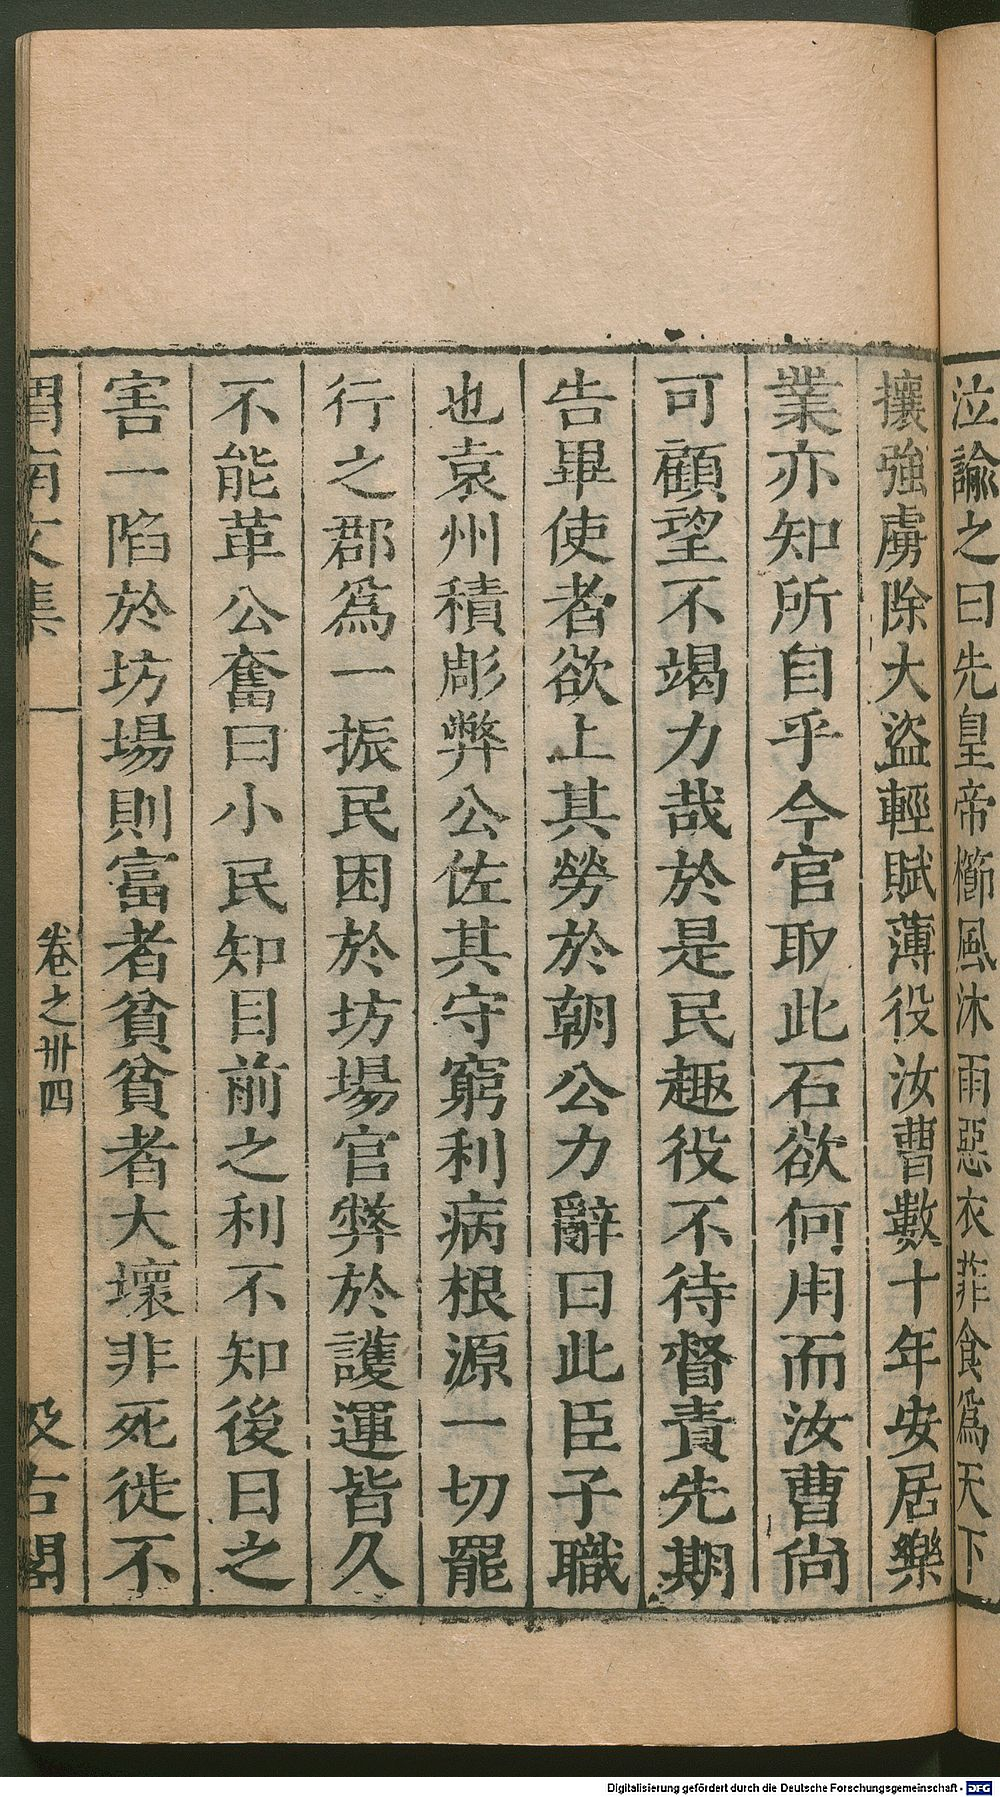 泣諭之曰先皇帝櫛風沐雨惡衣菲食爲天下
攘強虜除大盜輕賦薄役汝曹數十年安居樂
業亦知所自乎今官取此石欲何用而汝曹尙
可顧望不竭力哉於是民趣役不待督責先期
告畢使者欲上其勞於朝公力辭曰此臣子職
也袁州積彫弊公佐其守窮利病根源一切罷
行之郡爲一振民困於坊場官弊於護運皆久
不能革公奮曰小民知目前之利不知後日之
害一陷於坊場則富者貧貧者大壞非死徙不
渭南文集 卷之卅四 汲古閣
Digitalisierung gefördert durch die Deutsche Forschungsgemeinschaft - DFG